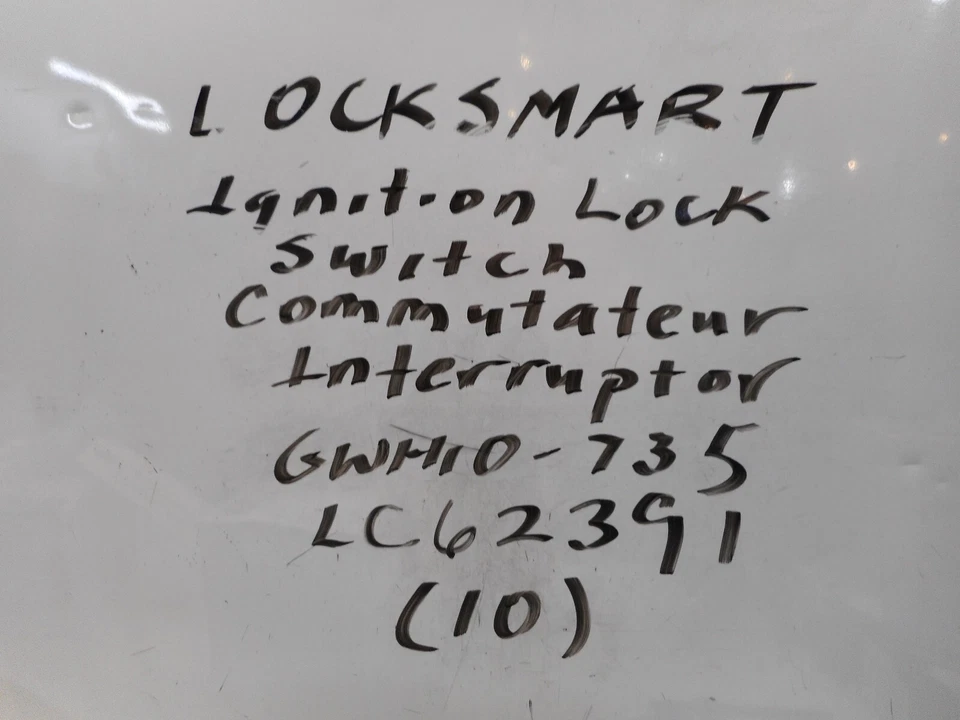 LOCKSMART
Ignition Lock
Switch
Commutateur
Interruptor
GWH10-735
LC62391
(10)